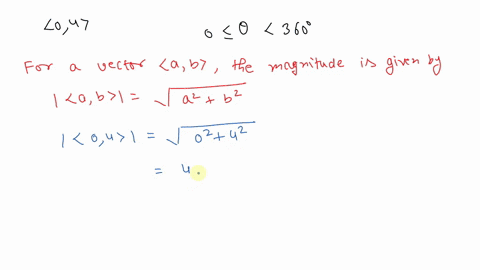 <0,4>
0 ≤ θ < 360°
For a vector <a,b>, the magnitude is given by
|<a,b>| = √a² + b²
|<0,4>| = √0² + 4²
= 4